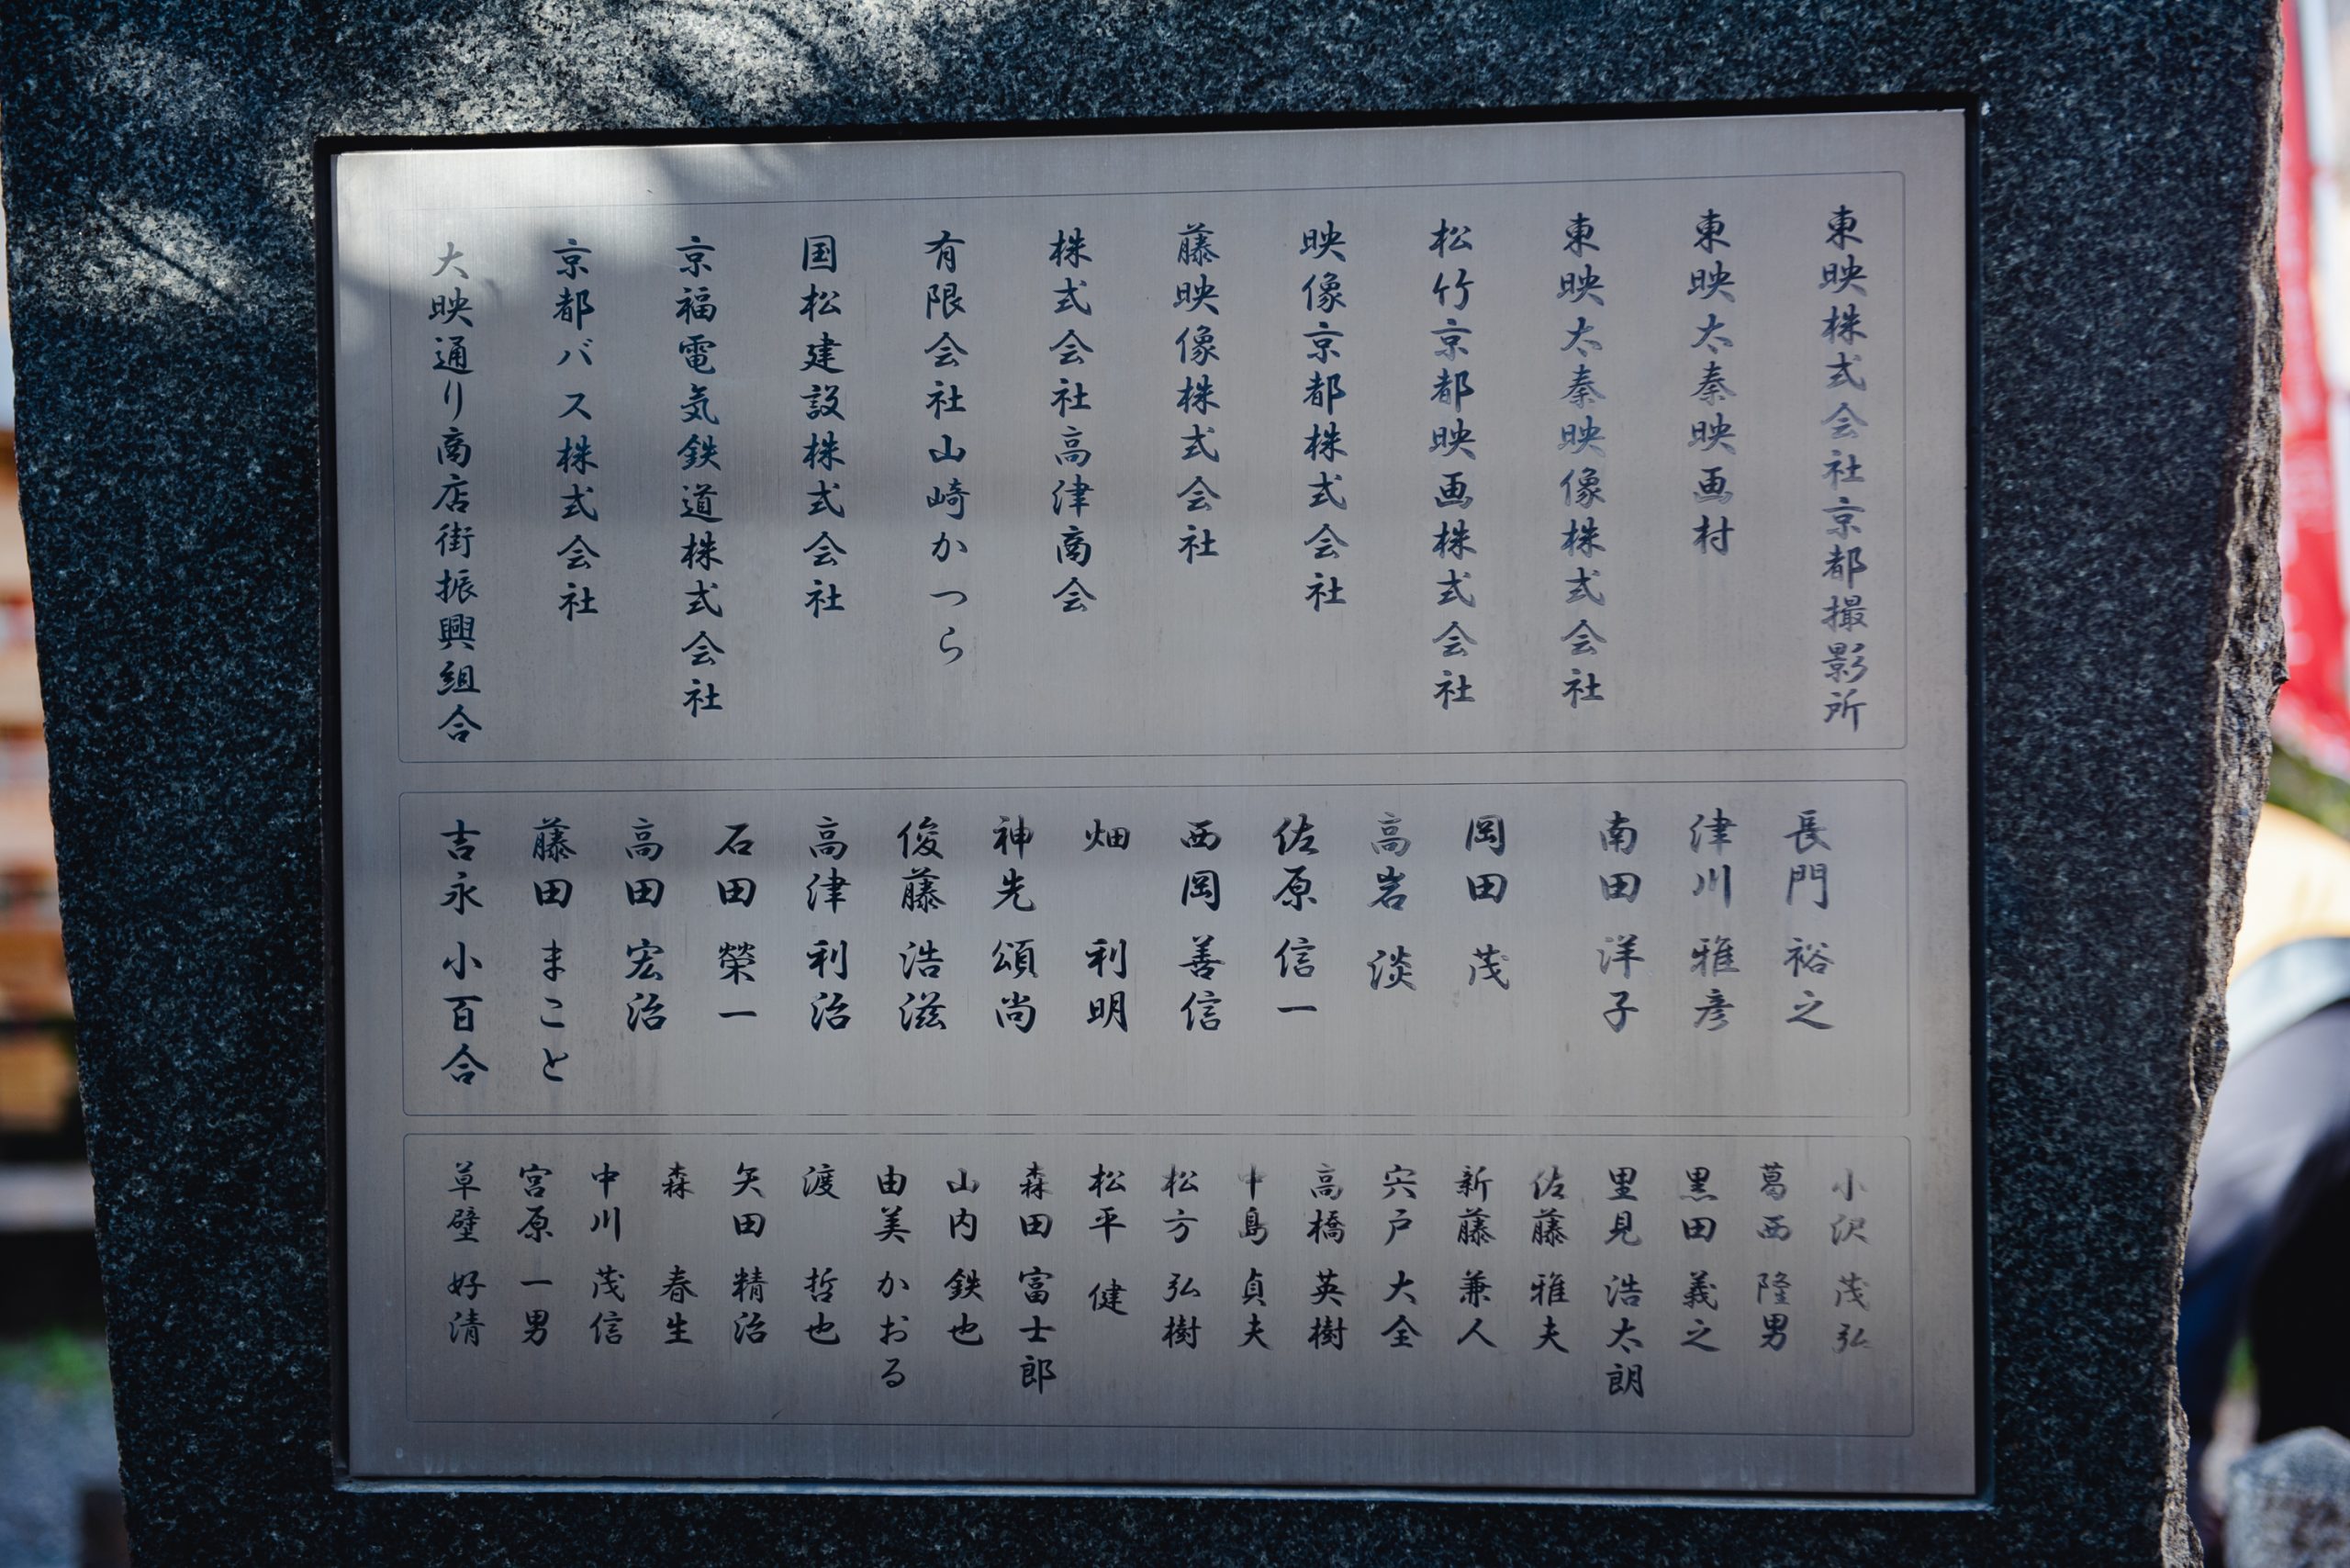 東映株式会社京都撮影所
東映太秦映画村
東映太秦映像株式会社
松竹京都映画株式会社
映像京都株式会社
藤映像株式会社
株式会社高津商会
有限会社山崎かつら
国松建設株式会社
京福電気鉄道株式会社
京都バス株式会社
大映通り商店街振興組合
長門 裕之
津川 雅彦
南田 洋子
岡田 茂
高岩 淡
佐原 信一
西岡 善信
畑 利明
神先 頌尚
俊藤 浩滋
高津 利治
石田 榮一
高田 宏治
藤田 まこと
吉永 小百合
小沢 茂弘
葛西 隆男
黒田 義之
里見 浩太朗
佐藤 雅夫
新藤 兼人
宍戸 大全
高橋 英樹
中島 貞夫
松方 弘樹
松平 健
森田 富士郎
山内 鉄也
由美 かおる
渡 哲也
矢田 精治
森 春生
中川 茂信
宮原 一男
草壁 好清